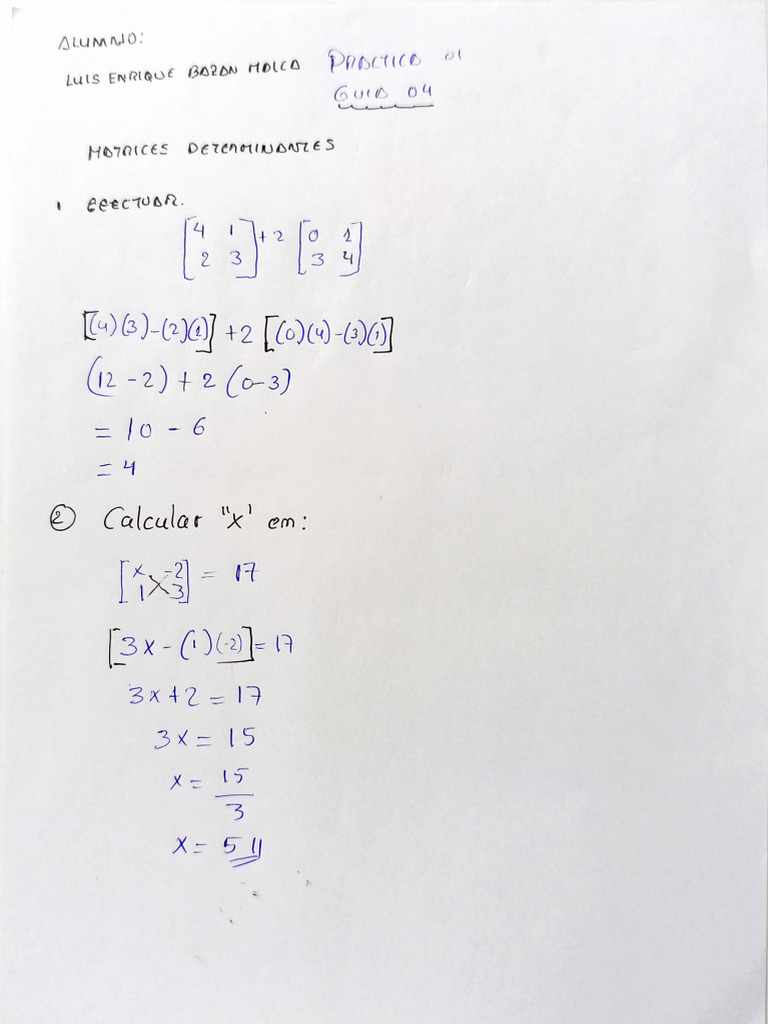 ALUMNO:
LUIS ENRIQUE BAZAN MALCA PRACTICA 01
GUIA 04
MATRICES DETERMINANTES
1 EFECTUAR.
[4 1] + 2 [0 1]
[2 3] [3 4]
[(4)(3)-(2)(1)] + 2 [(0)(4)-(3)(1)]
(12 - 2) + 2 (0-3)
= 10 - 6
= 4
② Calcular "x" em:
[x -2] = 17
[1 3]
[3x - (1)(-2)] = 17
3x + 2 = 17
3x = 15
x = 15
3
x = 5 //